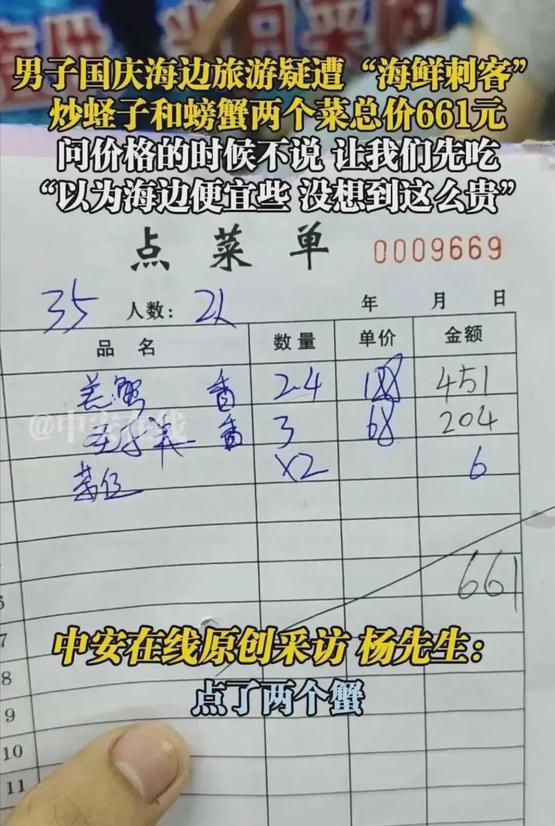 男子国庆海边旅游疑遭“海鲜刺客”
炒蛏子和螃蟹两个菜总价661元
问价格的时候不说 让我们先吃
“以为海边便宜些 没想到这么贵”
点菜单 0009669
35 人数：2人 年 月 日
品名 数量 单价 金额
羔蟹 香 2-4 188 451
@中安在线
3 68 204
茶位 X2 6
661
7
8
9
10
11
中安在线原创采访 杨先生：
点了两个蟹